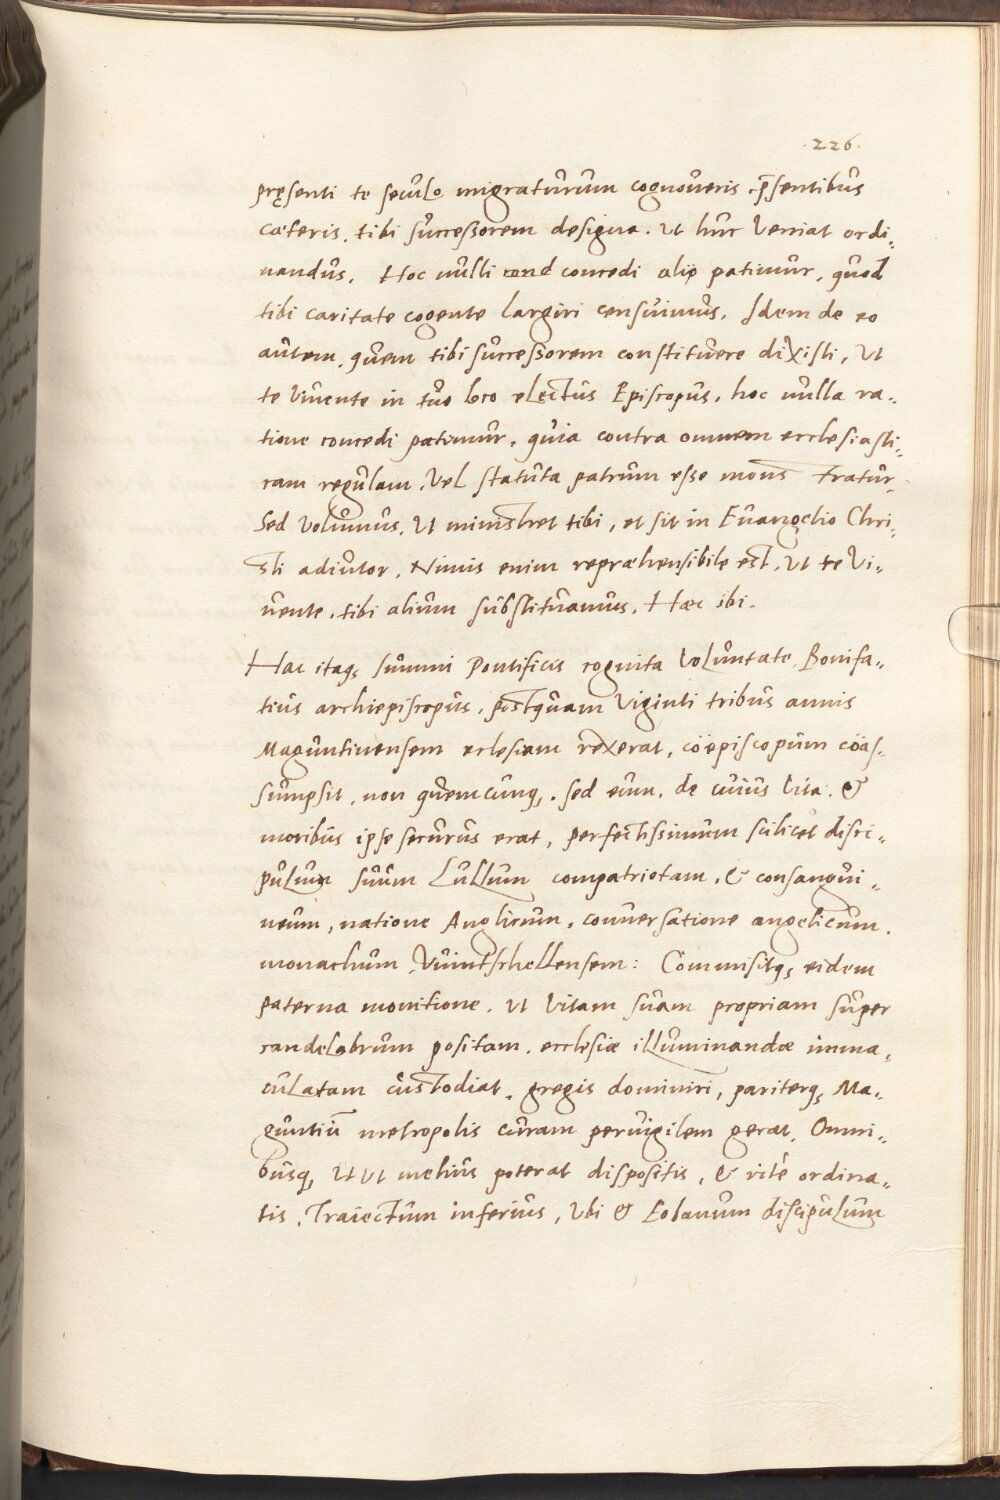 .226.
pręsenti te seculo migraturum cognoveris p̄sentibus
cæteris, tibi successorem designa. Ut huc Veniat ordi-
nandus. Hoc nulli concedi alij patimur, quod
tibi caritate cogente largiri censuimus. Idem de eo
autem, quem tibi successorem constituere dixisti, Ut
te Vivente in tuo loco electus Episcopus, hoc nulla ra-
tione concedi patimur, quia contra omnem ecclesiasti-
cam regulam, Vel statuta patrum esse monstratur,
Sed Volumus, Ut ministret tibi, et sit in Evangelio Chri-
sti adiutor, Nimis enim repræhensibile est, Ut te Vi-
vente, tibi alium substituamus. Hæc ibi.
Hac itaq, summi Pontificis cognita Voluntate, Bonifa-
tius archiepiscopus, postquam Viginti tribus annis
Maguntinensem eclesiam rexerat, cöepiscopum cöas-
sumpsit, non quemcunq, sed eum, de cuius Vita, &
moribus ipse securus erat, perfectissimum scilicet disci-
pulum suum Lullum compatriotam, & consangui-
neum, natione Anglicum, conversatione angelicum,
monachum Vuintschellensem: Commisitq, eidem
paterna monitione, Ut Vitam suam propriam super
candelabrum positam, ecclesiæ illuminandæ imma-
culatam custodiat, gregis dominici, pariterq, Ma-
guntiū metropolis curam pervigilem gerat, Omni-
busq, Ut ut melius poterat dispositis, & ritè ordina-
tis, Traiectum inferius, Ubi & Eobanum discipulum